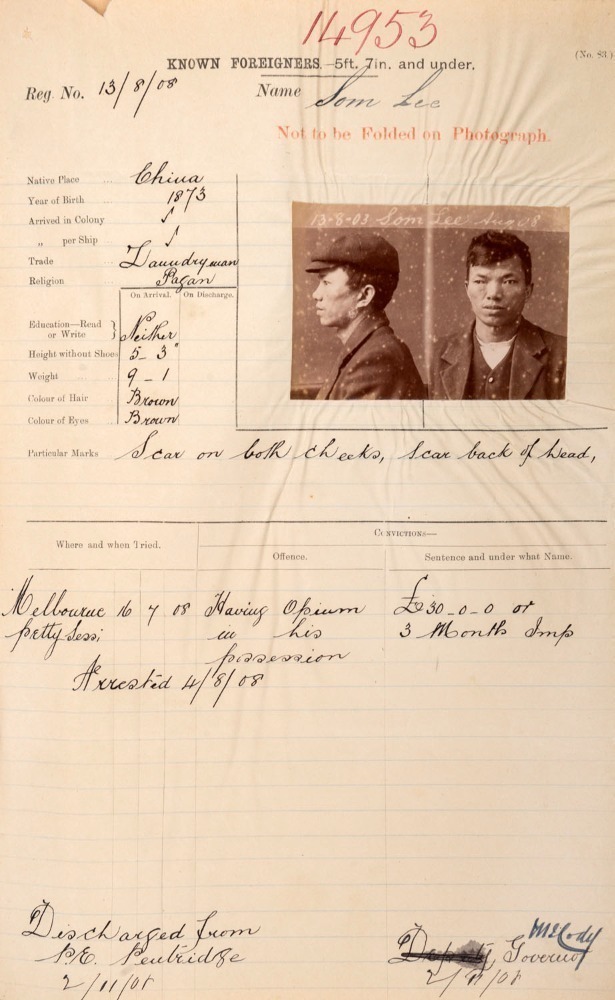 14953
(No. 83.)
KNOWN FOREIGNERS.—5ft. 7in. and under.
Reg. No. 13/8/08
Name Som Lee
Not to be Folded on Photograph.
Native Place ... China
Year of Birth ... 1873
Arrived in Colony ... ✓
„ per Ship ... ✓
Trade ... Laundryman
Religion ... Pagan
13-8-03 Som Lee Aug 08
On Arrival. On Discharge.
Education—Read or Write } Neither
Height without Shoes 5 - 3"
Weight ... 9 - 1
Colour of Hair ... Brown
Colour of Eyes ... Brown
Particular Marks Scar on both cheeks, scar back of head,
CONVICTIONS—
Where and when Tried. Offence. Sentence and under what Name.
Melbourne 16 7 08 Having Opium £30-0-0 or
petty Sess; in his 3 Month Imp
possession
Arrested 4/8/08
Discharged from
P.E. Pentridge
2/11/08
Deputy Governor
2/11/08